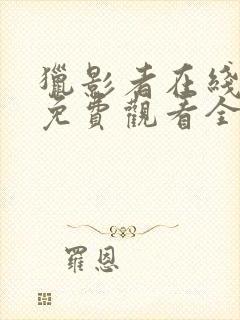 獵影者在綫
免費觀看全
羅恩